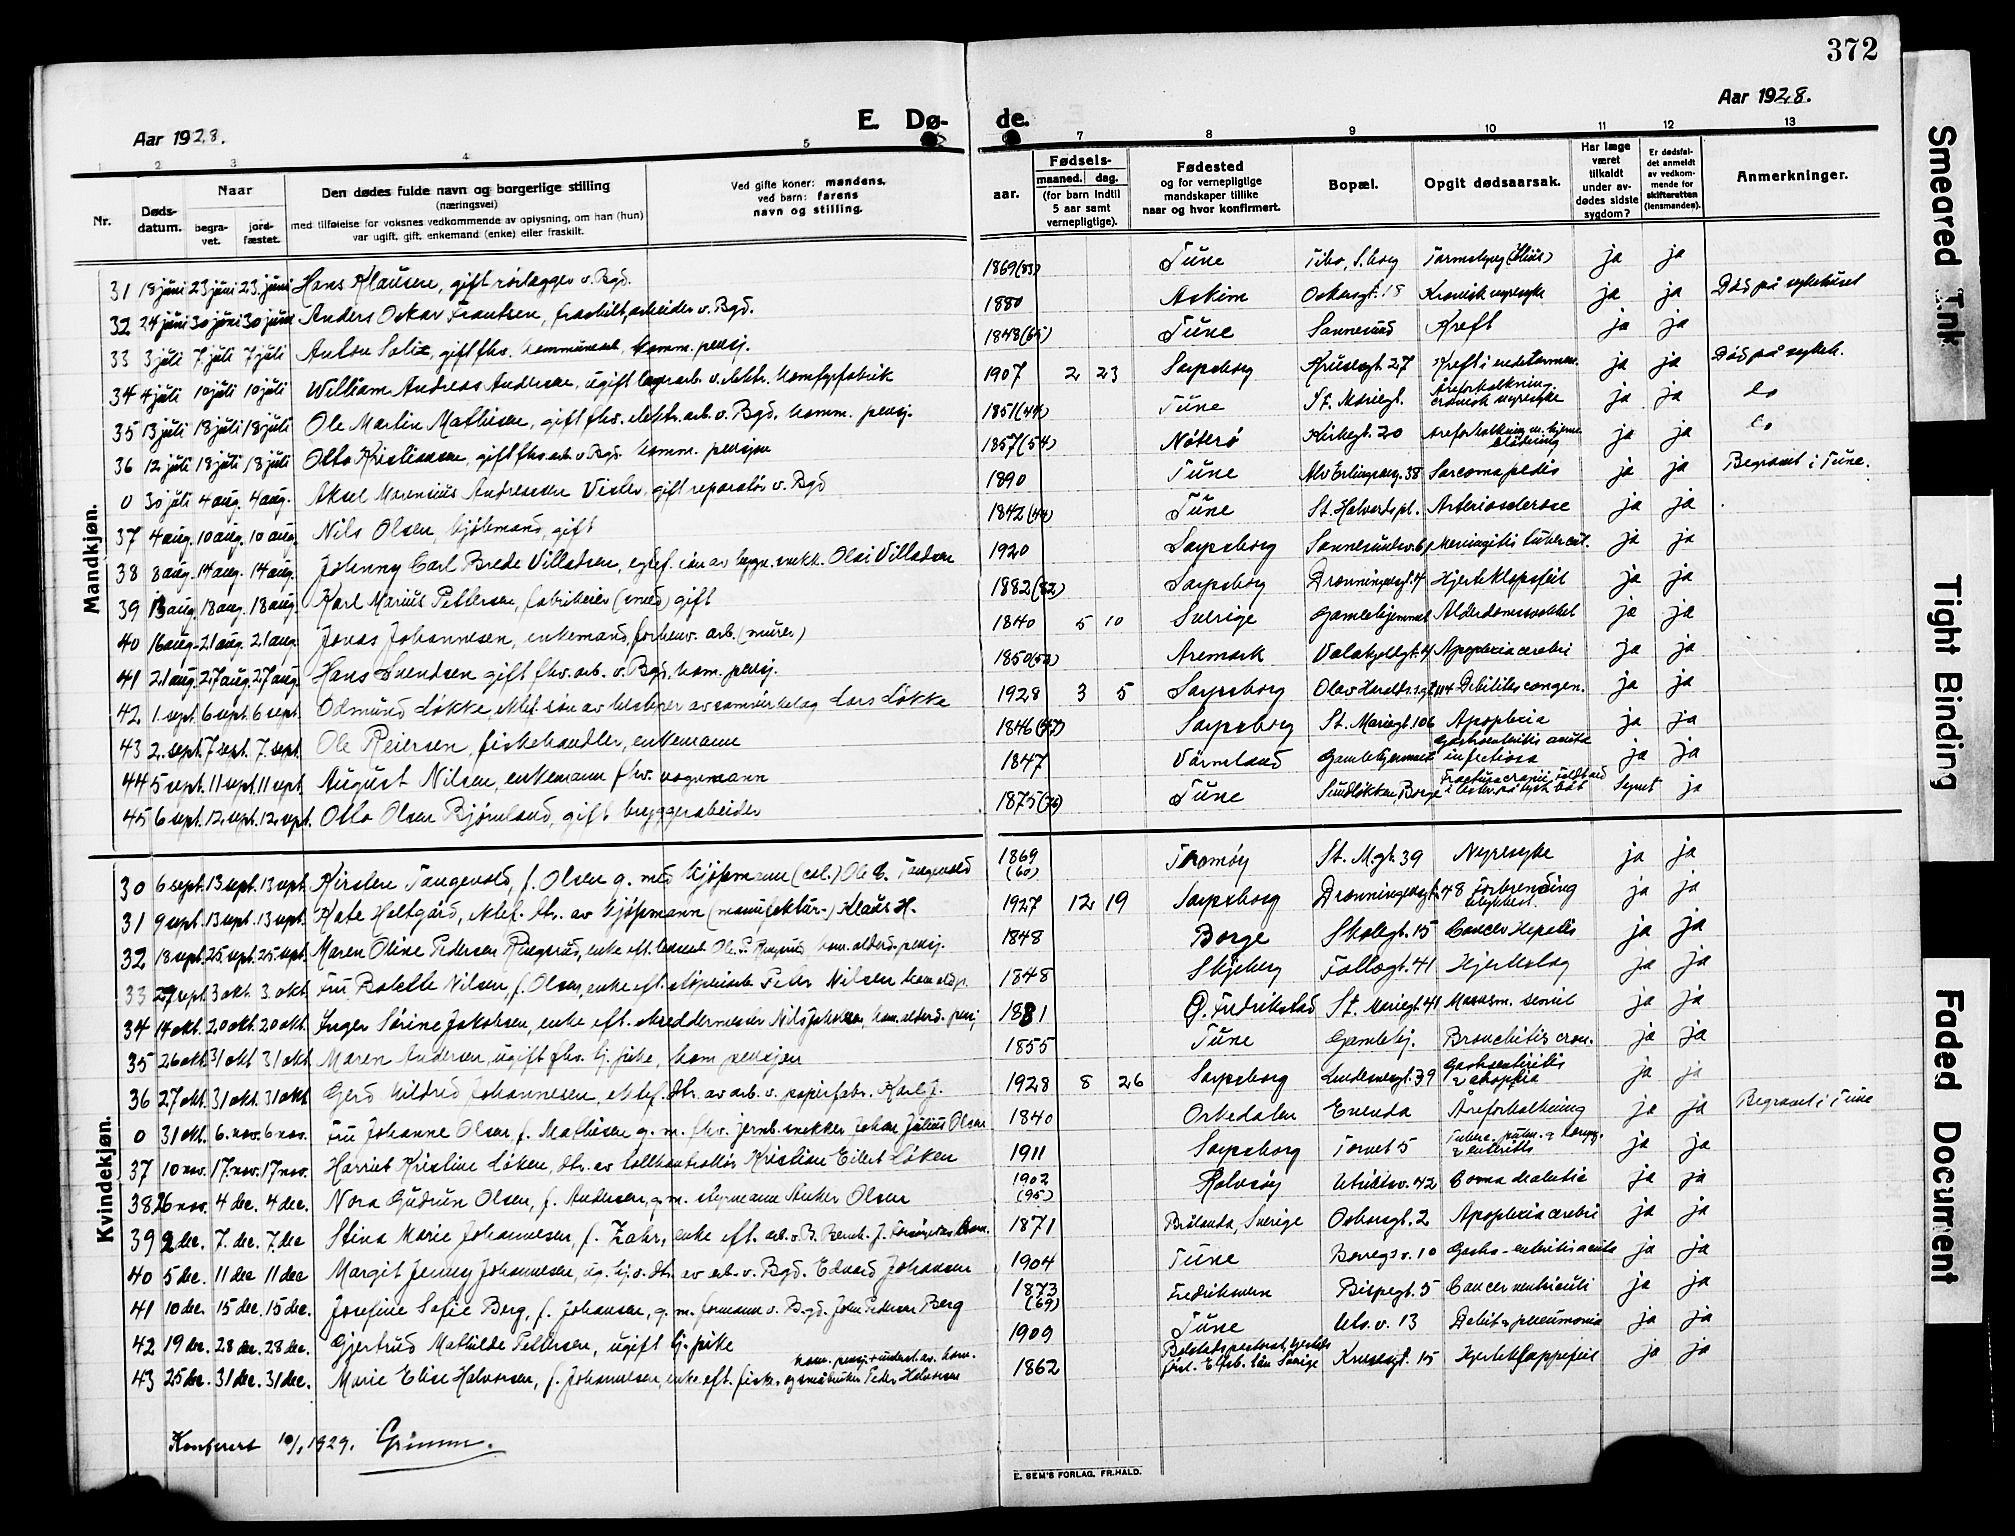 372
Aar 1928.
E. Dø- de.
Aar 1928.
1 2 3 4 5 7 8 9 10 11 12 13
Nr. Døds-datum. Naar begra-vet. jord-fæstet. Den dødes fulde navn og borgerlige stilling (næringsvei) med tilføielse for voksnes vedkommende av oplysning, om han (hun) var ugift, gift, enkemand (enke) eller fraskilt. Ved gifte koner: mandens, ved barn: farens navn og stilling. aar. Fødsels- maaned. dag. (for barn indtil 5 aar samt vernepligtige). Fødested og for vernepligtige mandskaper tillike naar og hvor konfirmert. Bopæl. Opgit dødsaarsak. Har læge været tilkaldt under av-dødes sidste sygdom? Er dødsfal-det anmeldt av vedkom-mende for skifteretten (lensmanden). Anmerkninger.
Mandkjøn.
31 18 juni 23 juni 23. juni Hans Klausen, gift rørlegger v. Bgd. 1869 Tune ja ja
32 24 juni 30 juni 30 juni Anders Oskar Frantsen, fraskilt, arbeider v. Bgd. 1880 Askim Oskarsgt. 18 Kronisk nyresyke ja ja Død på sykehuset
33 3 juli 7 juli 7 juli Anton gift fhv. komm. pensj. 1848 Tune Sannesund Kreft ja ja
34 4 juli 10 juli 10 juli William Andreas Andersen, ugift lagerarb. v. elektr. komfyrfabrik 1907 2 23 Sarpsborg Krusesgt 27 Kreft i endetarmen ja ja Død på sykeh.
35 13 juli 18 juli 18 juli Ole Martin Mathisen, gift fhv. elektr. arb. v. Bgd. komm. pensj. 1851(44) Tune St. Mariegt. Åreforkalkning. Cronisk nyresyke ja ja do
36 12 juli 18 juli 18 juli Otto Kristiansen, gift fhv. arb v. Bgd. komm. pensjon 1857(54) Nøterø Kirkegt. 20 Åreforkalkning m. hjerneblødning ja ja do
0 30 juli 4 aug. 4 aug. Aksel Marensius Andreassen Visler, gift reparatør v. Bgd 1890 Tune Alv Erlingsveg. 38 Sarcoma pedis ja ja Begravet i Tune.
37 4 aug. 10 aug. 10 aug. Nils Olsen, kjøbmand, gift 1842(44) Tune St. Halvards pl. Arteriosclerose ja ja
38 8 aug. 14 aug. 14 aug. Johnny Carl Brede Villadsen, egtef. søn av bygn. snekk. Olai Villadsen 1920 Sarpsborg Sannesundsv. 61 Meningitis tubercul. ja ja
39 13 aug. 18 aug. 18 aug. Karl Marius Pettersen, fabrikeier (smed) gift 1882(82) Sarpsborg Dronningensgt. 4 Hjerteklapfeil ja ja
40 16 aug. 21 aug. 21 aug. Jonas Johannesen, enkemand, forhenv. arb. (murer) 1840 5 10 Sverige Gamlehjemmet Alderdomssvakhet ja ja
41 21 aug. 27 aug. 27 aug. Hans Svendsen gift fhv. arb. v. Bgd. kom. pensj. 1850(50) Aremark Valaskjoldgt. 4 Apoplexia cerebri ja ja
42 1. sept. 6 sept. 6 sept. Odmund Løkke, ektef. søn av bestyrer av samvirkelag Lars Løkke 1928 3 5 Sarpsborg Olav Haraldssgt. 104 Debilitas congen. ja ja
43 2. sept. 7 sept. 7. sept. Ole Reiersen, fiskehandler, enkemann 1846 Sarpsborg St. Mariegt. 106 Apoplexia ja ja
44 5 sept. 11 sept. 11 sept. August Nilsen, enkemann fhv. vognmann 1847 Värmland Gamlehjemmet Gastroenteritis acuta infectiosa ja ja
45 6 sept. 12 sept. 12 sept. Otto Olsen Bjørnland, gift bryggearbeider 1875 Tune Sundløkken, Borge Fractura cranii. Synet ja
Kvindekjøn.
30 6 sept. 13 sept. 13 sept. Kirsten Tangevold, f. Olsen g. med kjøpmann (col.) Ole E. Tangevold 1869 (60) Tromøy St. M.gt. 39 Nyresyke ja ja
31 9 sept. 13 sept. 13 sept. Kate Holtgård, ektef. dtr. av kjøpmann (manufaktur-) Klaus H. 1927 12 19 Sarpsborg Dronningensgt. 48 Forbrending ja ja
32 18 sept. 25 sept. 25 sept. Maren Oline Pedersen Ringsrud, enke eft. Ole P. Ringsrud kom. alderd. pensj. 1848 Borge Skolegt. 15 Cancer Hepatis ja ja
33 29 sept. 3 okt. 3. okt Fru Bolette Nilsen f. Olsen, enke eft. støperiarb. Peder Nilsen 1848 Skjeberg Follogt. 41 Hjerteslag ja ja
34 14 okt. 20 okt. 20 okt. Inger Sørine Jakobsen, enke eft. skreddermester Nils Jakobsen, kom. alderd. pensj. 1881 G. Fredrikstad St. Mariegt 41 Marasm. senil ja ja
35 26 okt. 31 okt 31 okt. Maren Andersen, ugift fhv. tj. pike, kom pensjon 1855 Tune Gamlehj. Bronchitis cron. ja ja
36 27 okt. 31 okt. 31 okt Gerd Mildred Johannesen, ektef. dtr. av arb. v. papirfabr. Karl J. 1928 8 26 Sarpsborg Lundesnesgt. 39 Gastroenteritis & atrophia ja ja
0 31 okt. 6. nov. 6 nov. Fru Johanne Olsen f. Mathisen g. m. fhv. jernb. snekker Johan Julius Olsen 1840 Orkedalen Enenda Åreforkalkning ja ja Begravet i Tune
37 10 nov. 17. nov. 17 nov. Harriet Kristine Løken, dtr. av tollkontrollør Kristian Eilert Løken 1911 Sarpsborg Torvet 5 Tuberc. pulm. & laryng. & enteritis ja ja
38 26 nov. 4 dec. 4 dec. Nora Gudrun Olsen, f. Andersen, g. m. styrmann Anker Olsen 1902 (95) Rolvsøy Utsiktsv. 42 Coma diabetic ja ja
39 2 dec. 7. dec. 7. dec Stina Marie Johannesen, f. Zakr., enke eft. arb. v. B. Bernh. J. Forsørget av kom. 1871 Brålanda, Sverige Oskarsgt. 2 Apoplexia cerebri ja ja
40 5 dec. 11 dec 11 dec Margit Jenny Johannesen, ug. hj. v. dtr. av arb. v. Bgd. Edvard Johansen 1904 Tune Borregs v. 10 Gastro-enteritis acuta ja ja
41 10 dec. 15 dec. 15 dec. Josefine Sofie Berg, f. Johansen, g. m. formann v. Bgd. John Pedersen Berg 1873 (69) Fredriksvern Bispegt. 5 Cancer ventriculi ja ja
42 19 dec. 28 dec. 28 dec. Gjertrud Mathilde Pettersen, ugift tj. pike 1909 Tune Uts. v. 13 Debil & pneumonia ja ja
43 25 dec. 31 dec. 31 dec. Marie Elise Halvorsen, f. Johannesen, enke eft. fisker og småbruker Peder Halvorsen kom. pensj. + underst. av kom. 1862 Sverige Krusesgt. 15 Hjerteklappefeil ja ja
Konferert 10/1 1929. Grimm.
E. SEM'S FORLAG, FR.HALD.
Smeared Ink
Tight Binding
Faded Document